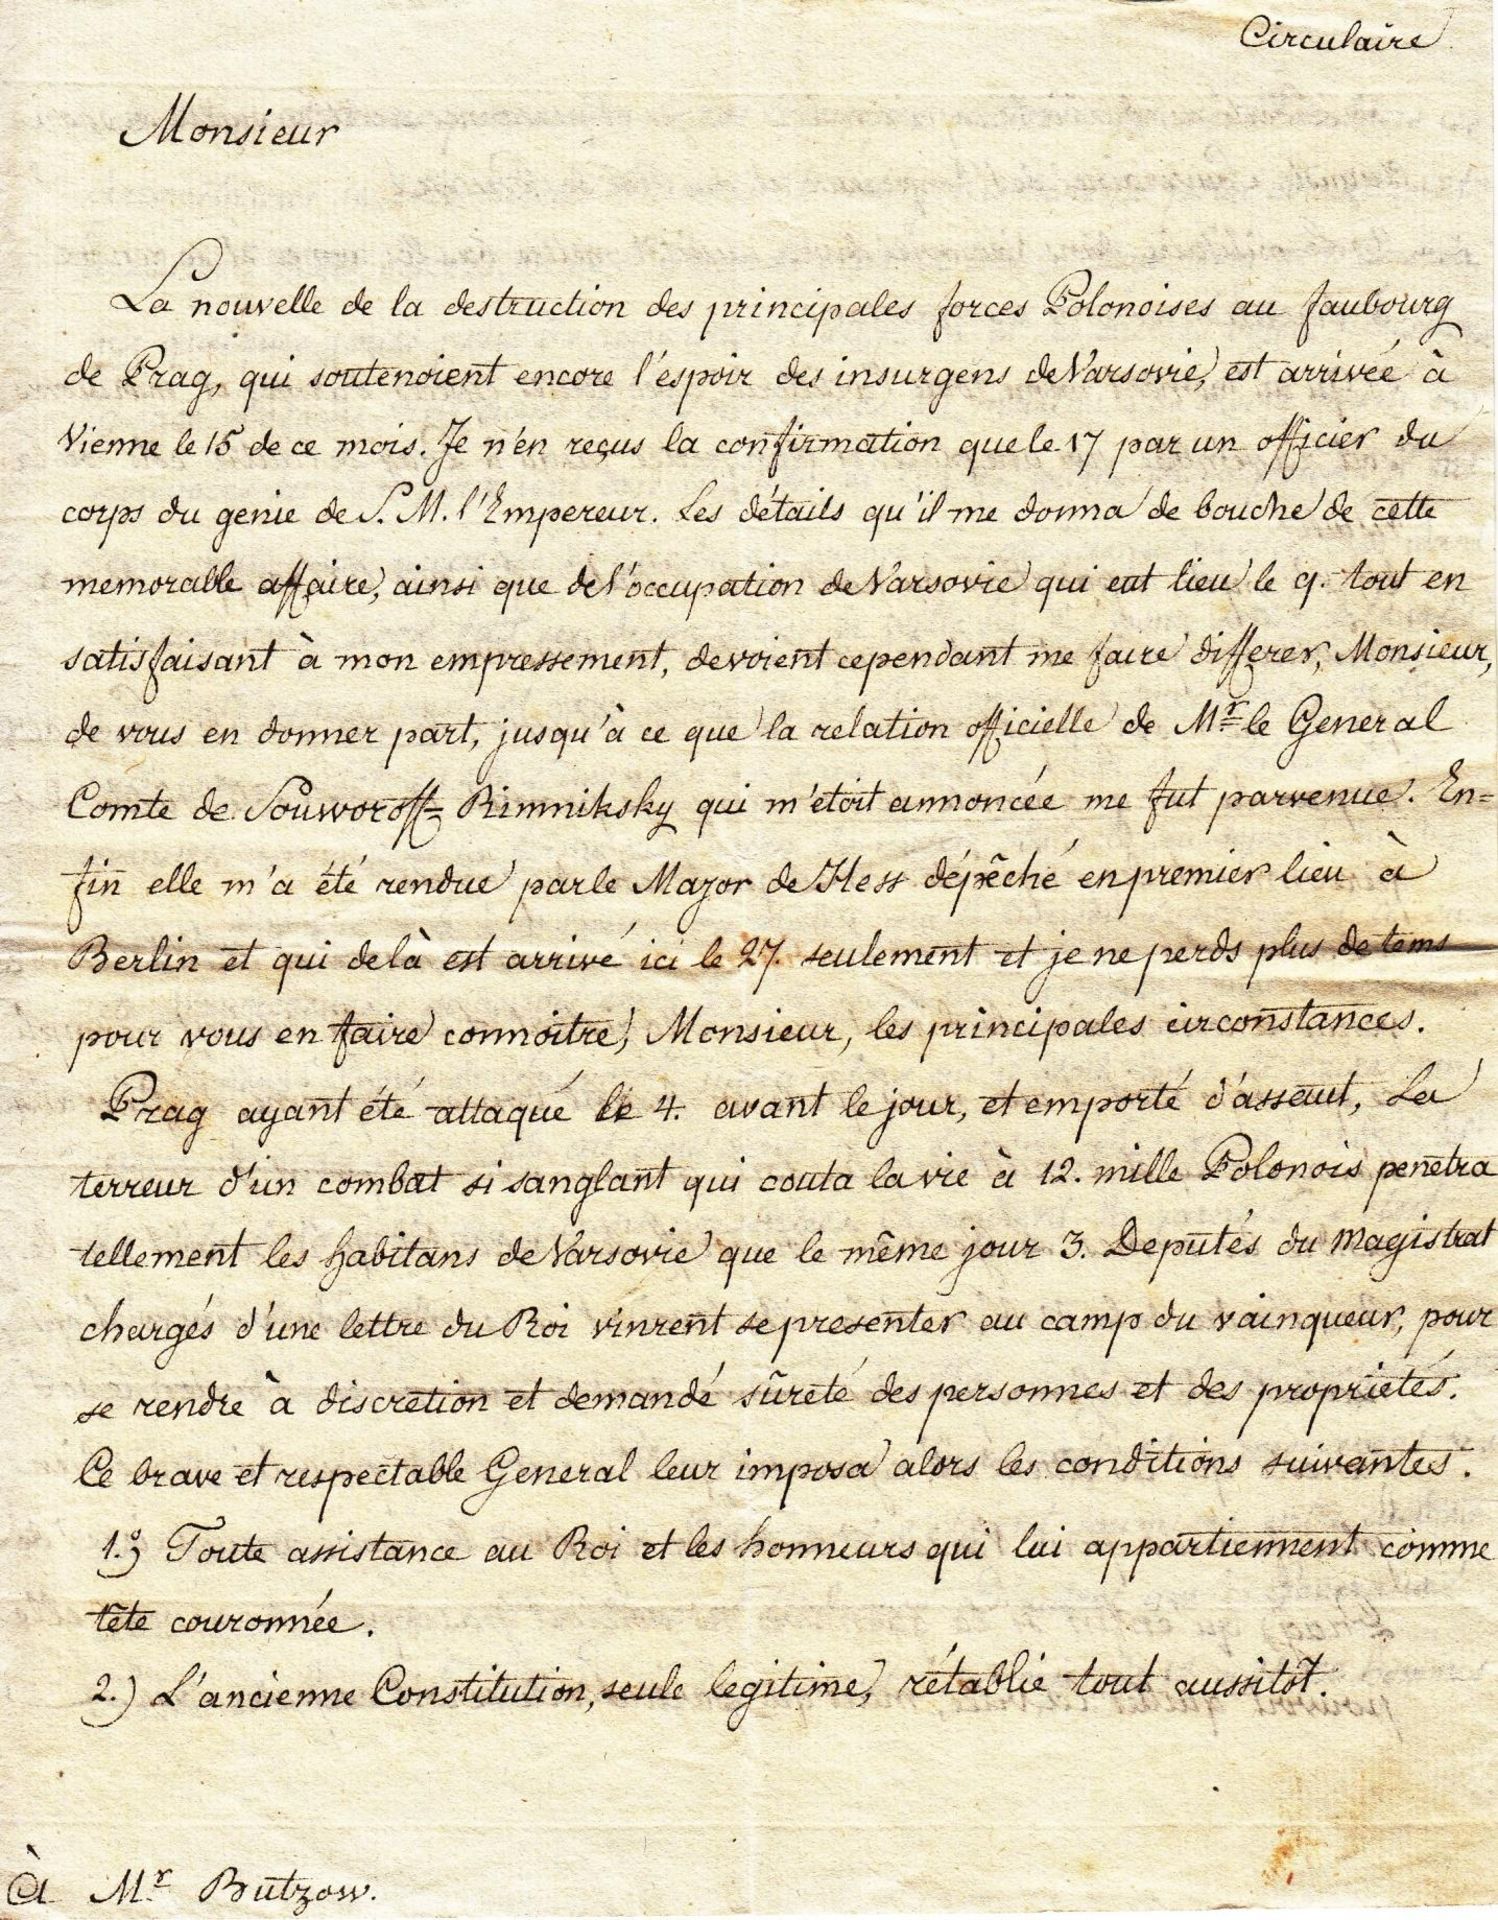 Circulaire
Monsieur
La nouvelle de la destruction des principales forces Polonoises au faubourg
de Prag, qui soutenoient encore l'éspoir des insurgens de Varsovie, est arrivée à
Vienne le 15 de ce mois. Je n'en reçus la confirmation que le 17 par un officier du
corps du genie de S. M. l'Empereur. Les détails qu'il me donna de bouche de cette
memorable affaire, ainsi que de l'occupation de Varsovie qui eut lieu le 9. tout en
satisfaisant à mon empressement, devoient cependant me faire differer, Monsieur,
de vous en donner part, jusqu'à ce que la relation officielle de Mr le General
Comte de Souworoff-Rimniksky qui m'étoit annoncée me fut parvenue. En=
fin elle m'a été rendue par le Major de Hess dépêché en premier lieu à
Berlin et qui delà est arrivé ici le 27. seulement et je ne perds plus de tems
pour vous en faire connoitre, Monsieur, les principales circonstances.
Prag ayant été attaqué le 4. avant le jour, et emporté d'assaut, La
terreur d'un combat si sanglant qui couta la vie à 12. mille Polonois penetra
tellement les habitans de Varsovie que le même jour 3. Deputés du magistrat
chargés d'une lettre du Roi vinrent se presenter au camp du vainqueur, pour
se rendre à discretion et demandé sûreté des personnes et des proprietés.
Ce brave et respectable General leur imposa alors les conditions suivantes.
1.º) Toute assistance au Roi et les honneurs qui lui appartiennent comme
tête couronnée.
2.) L'ancienne Constitution, seule legitime, rétablie tout aussitôt.
à Mr Butzow.